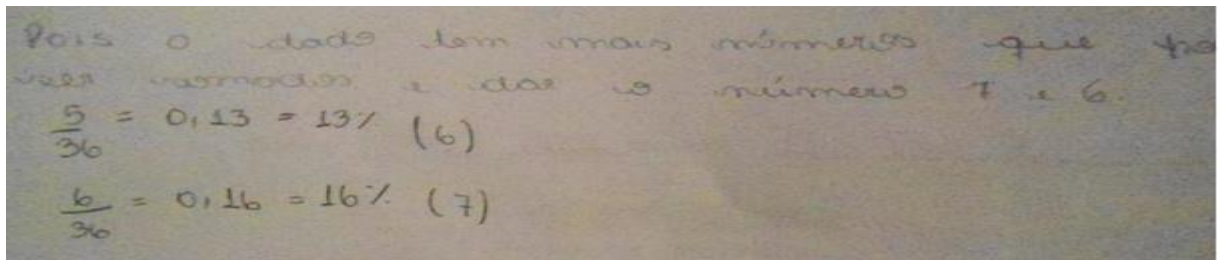 Pois o dado tem mais números que po
ser somados e dar o número 7 e 6.
5/36 = 0,13 = 13% (6)
6/36 = 0,16 = 16% (7)